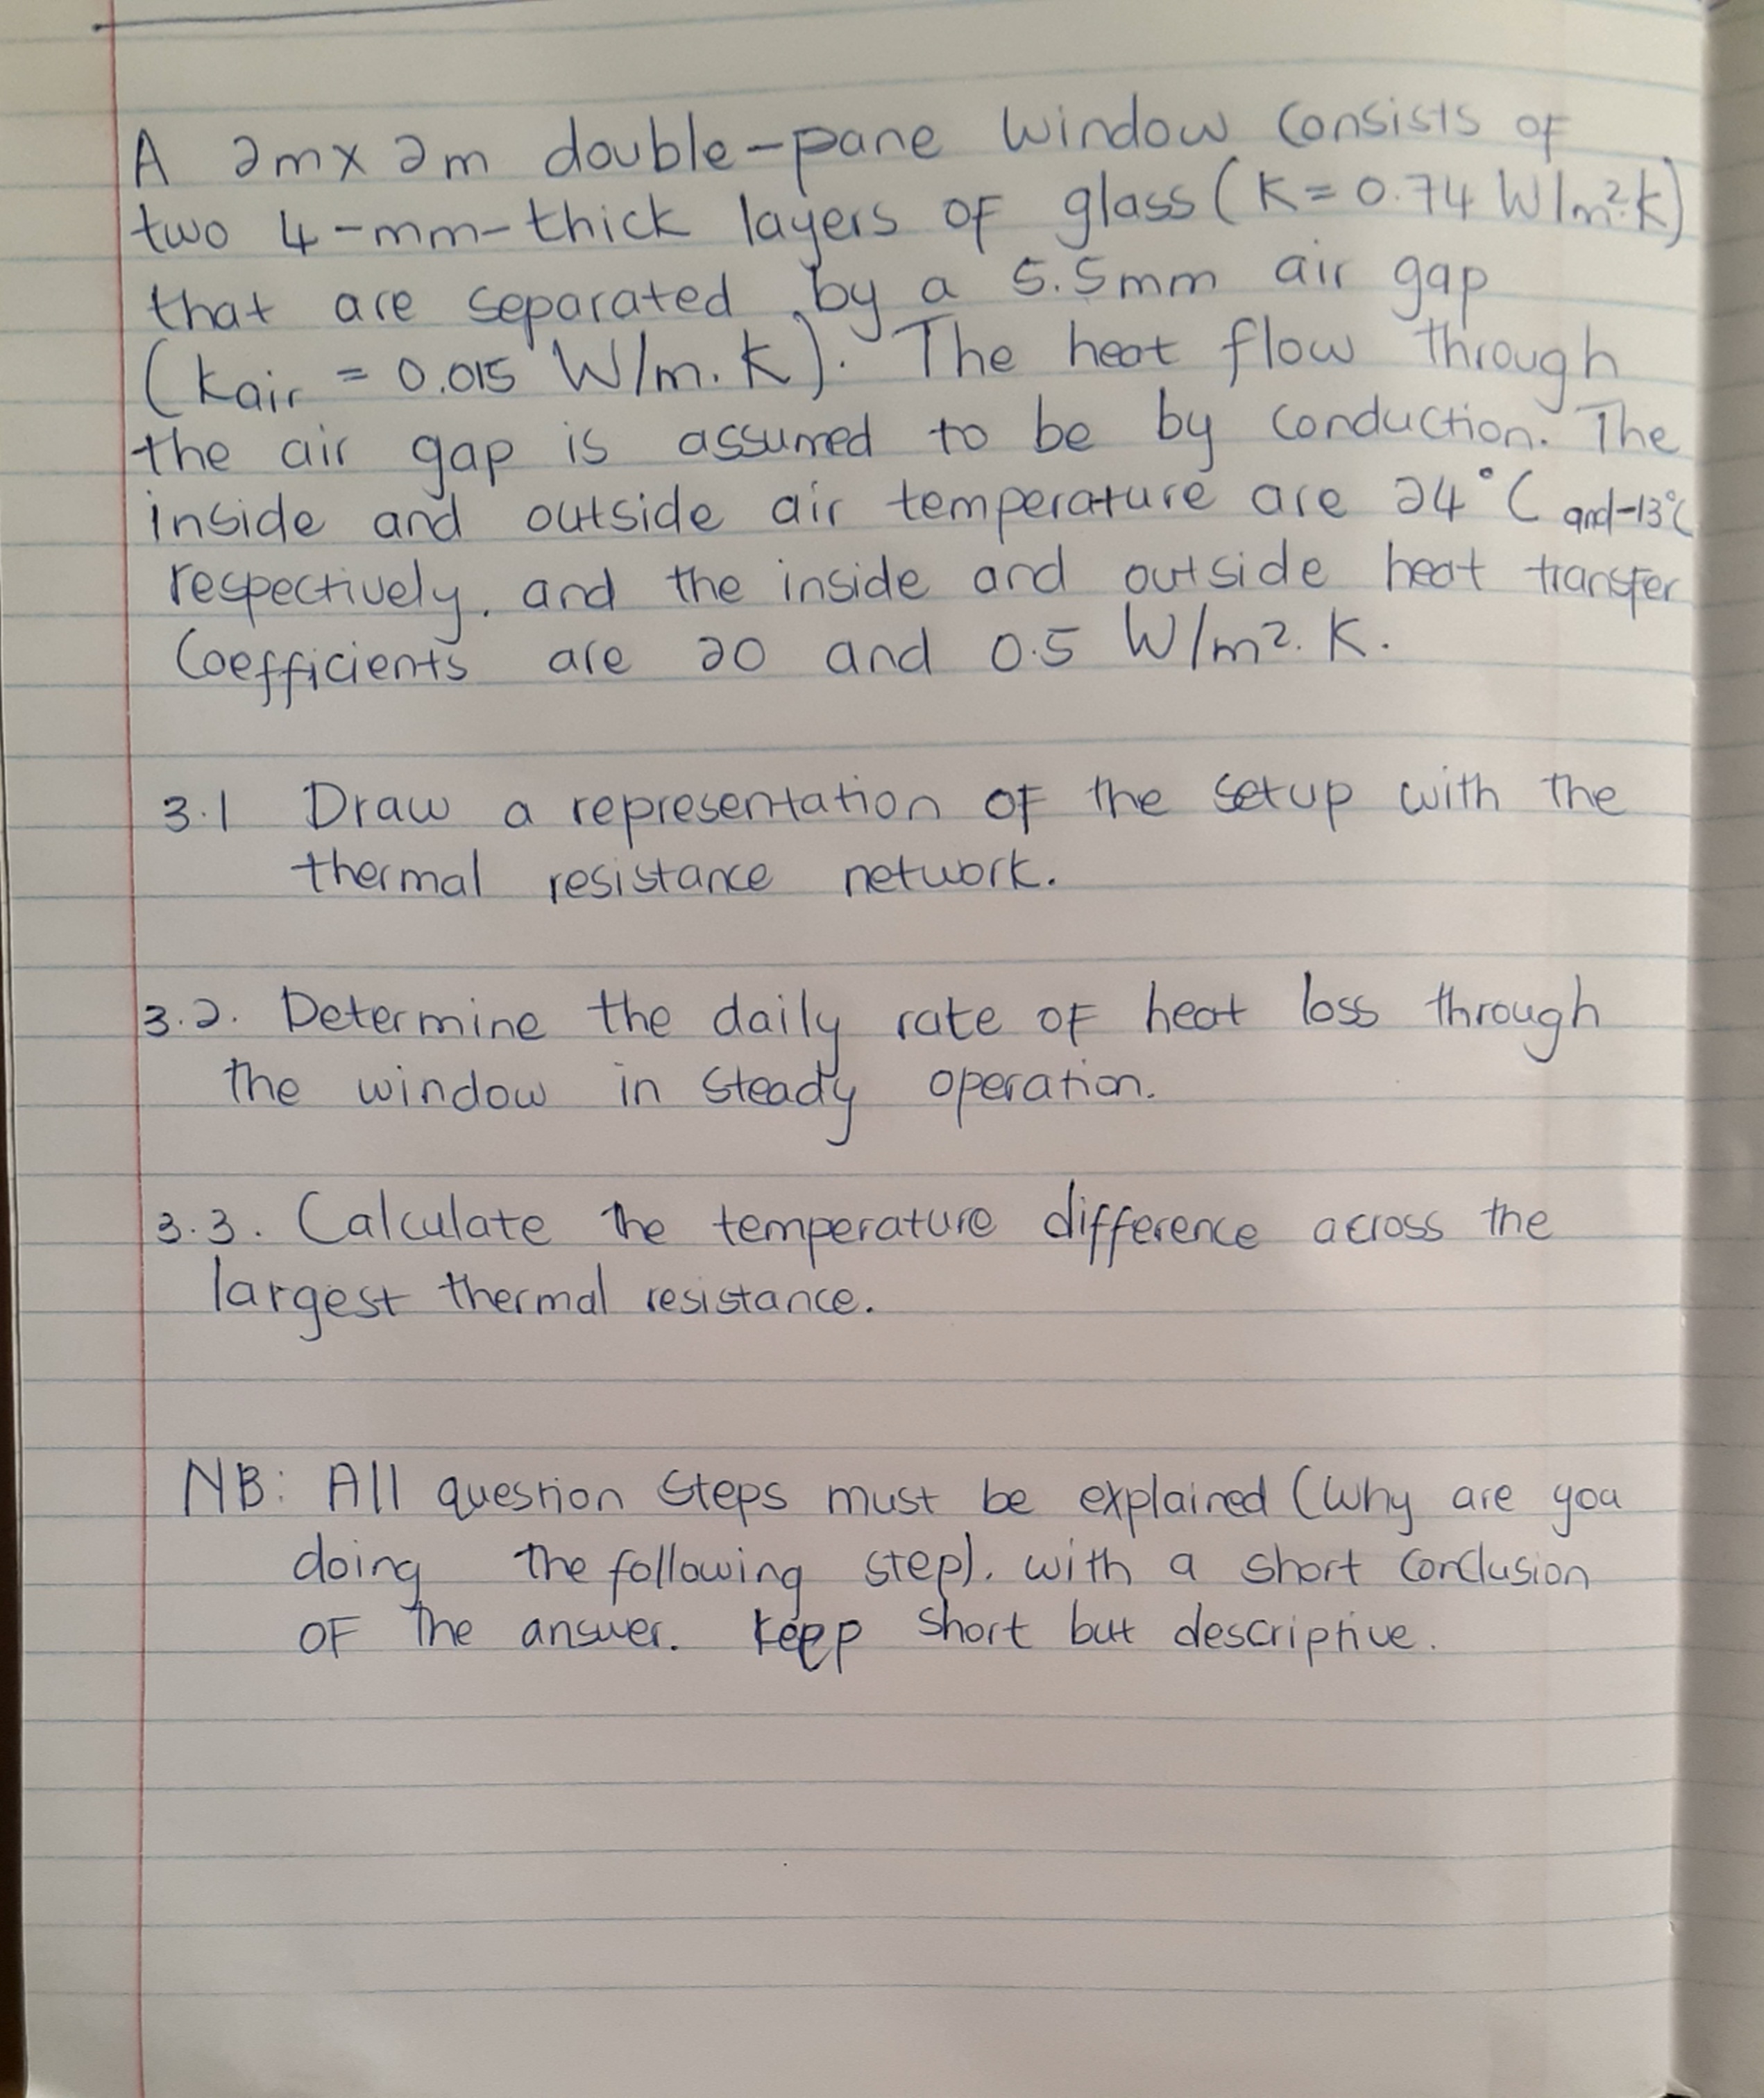 A 2m x 2m double-pane window consists of
two 4-mm-thick layers of glass (K = 0.74 W/m².K)
that are separated by a 5.5mm air gap
(Kair = 0.015 W/m.K). The heat flow through
the air gap is assumed to be by conduction. The
inside and outside air temperature are 24°C and -13°C
respectively, and the inside and outside heat transfer
Coefficients are 20 and 0.5 W/m².K.
3.1 Draw a representation of the setup with the
thermal resistance network.
3.2. Determine the daily rate of heat loss through
the window in steady operation.
3.3. Calculate the temperature difference across the
largest thermal resistance.
NB: All question steps must be explained (Why are you
doing the following step), with a short conclusion
OF the answer. Keep short but descriptive.